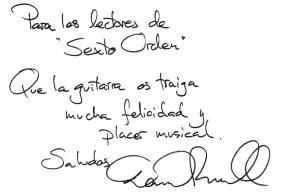 Para los lectores de
"Sexto Orden"
Que la guitarra os traiga
mucha felicidad y
placer musical.
Saludos